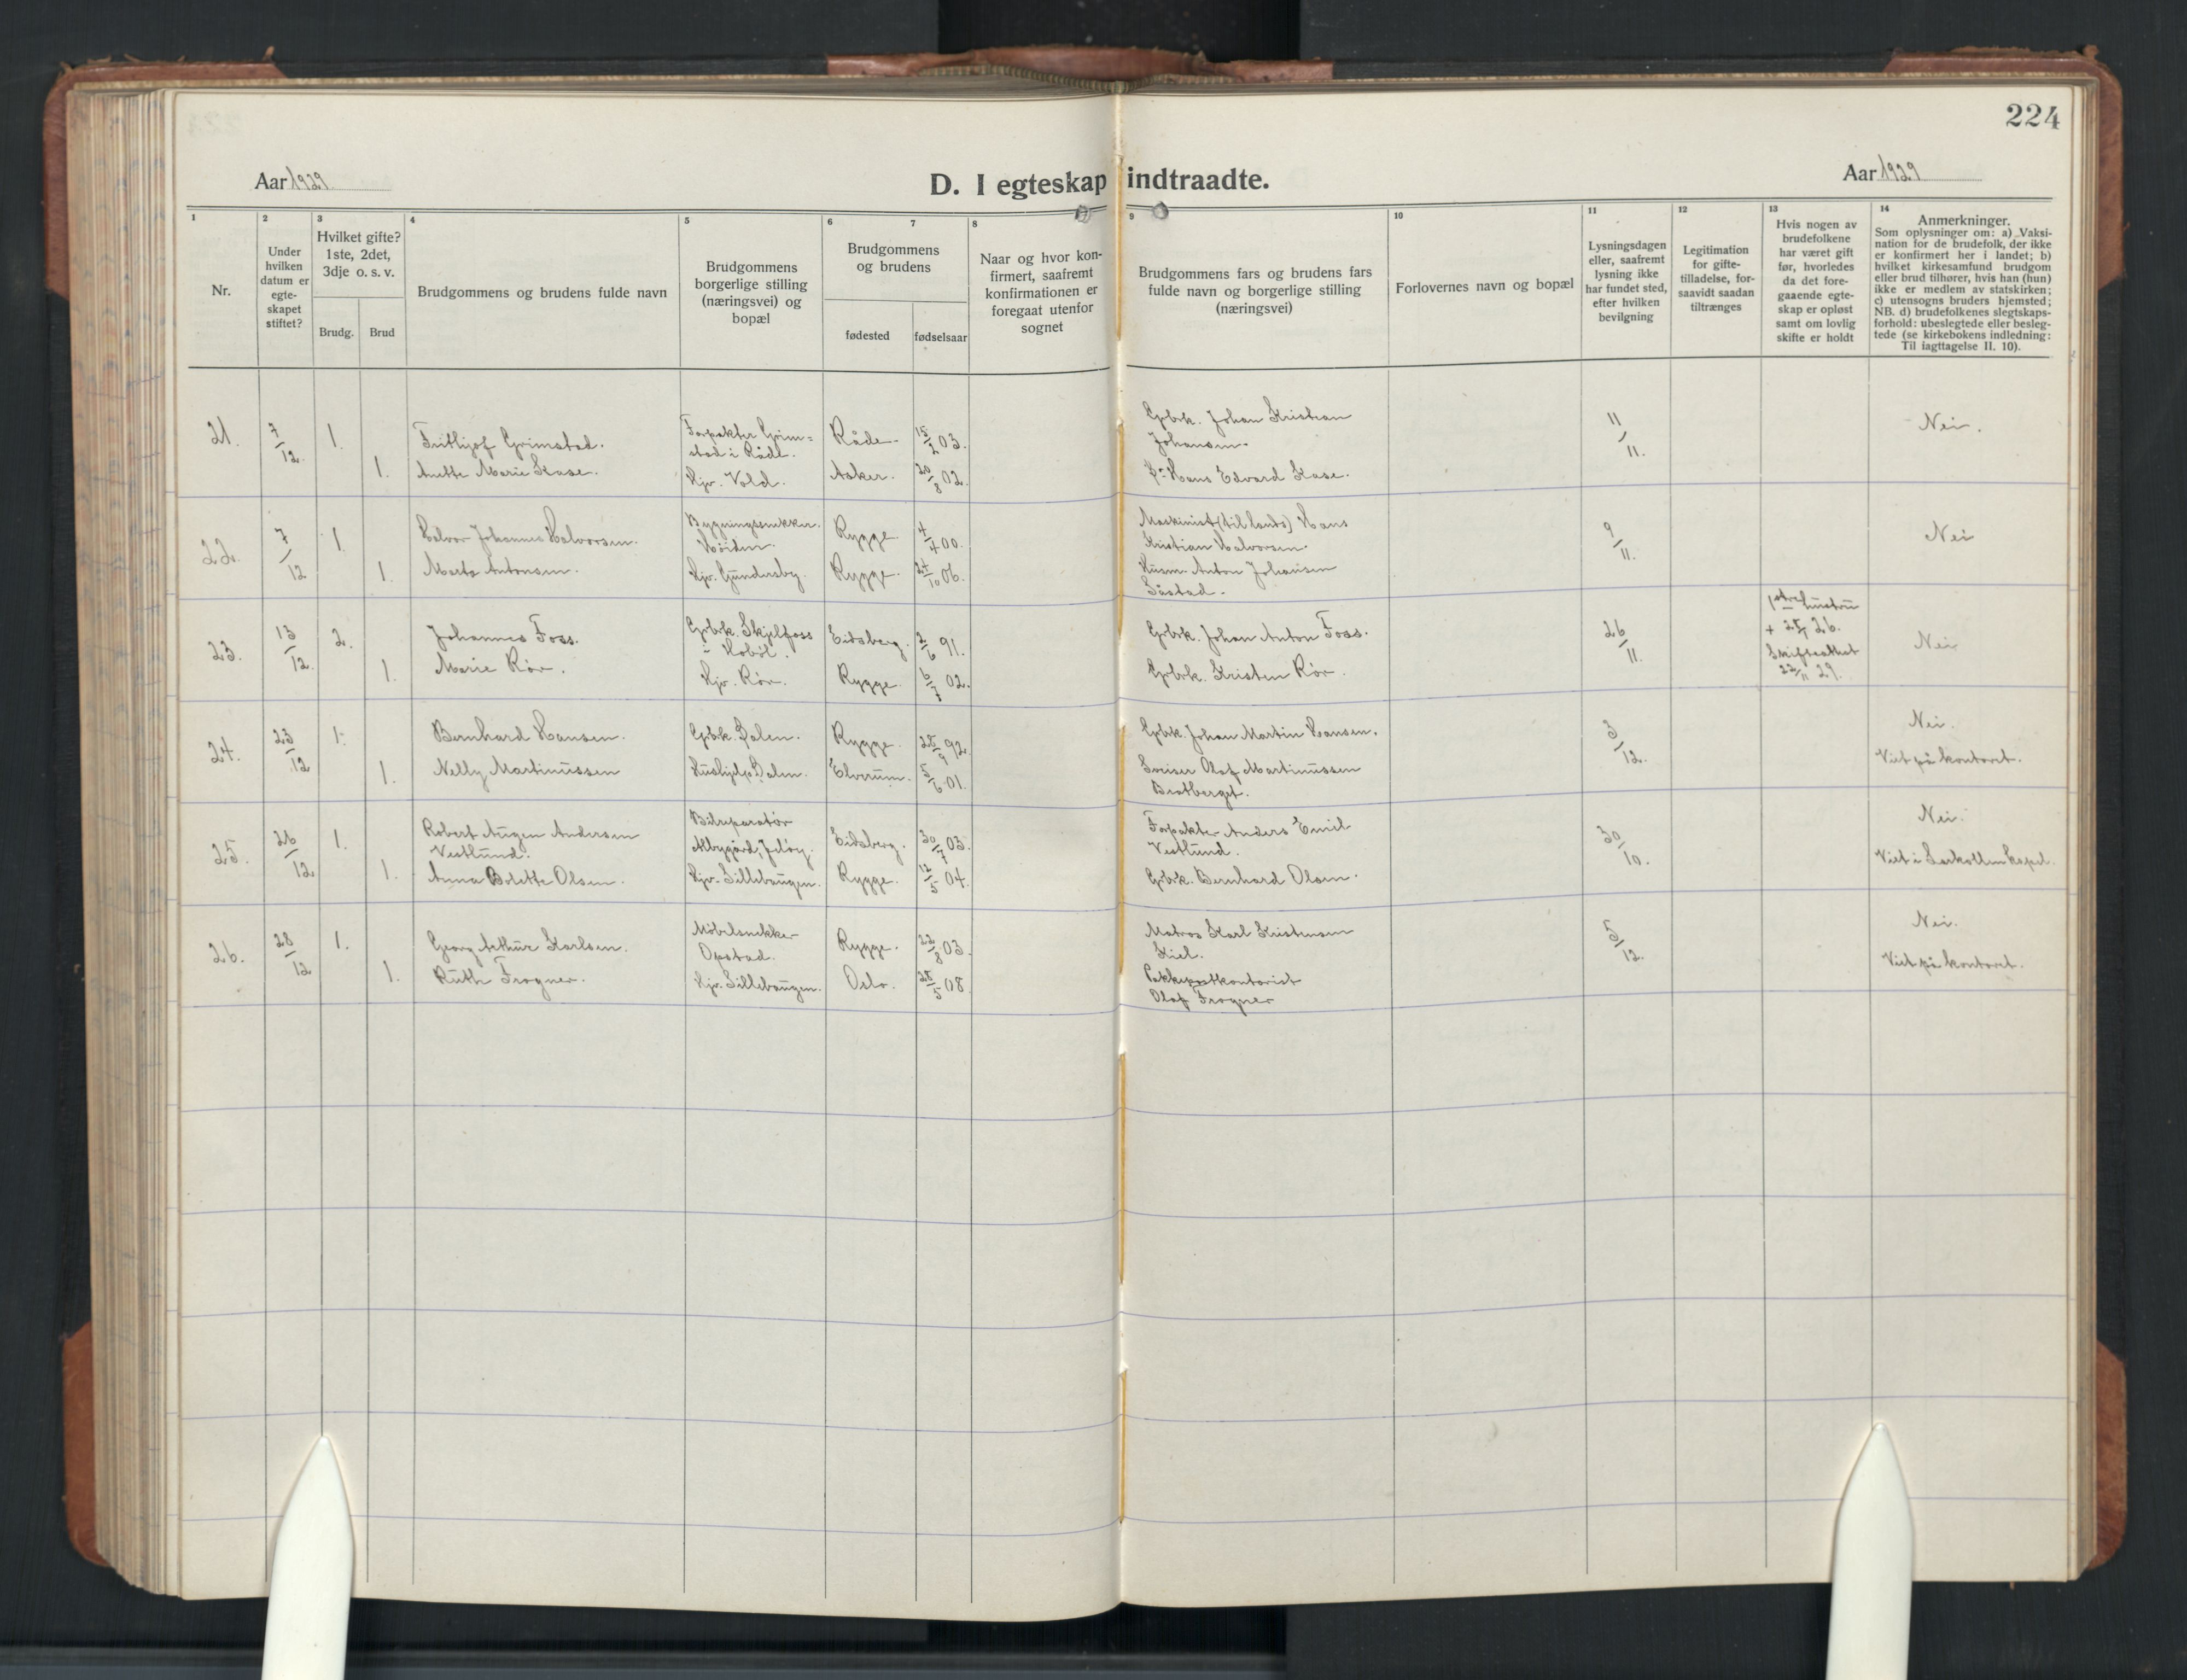 224
Aar 1929
D. I egteskap indtraadte.
Aar 1929
1
2
3
4
5
6
7
8
9
10
11
12
13
14
Nr.
Under hvilken datum er egte-skapet stiftet?
Hvilket gifte? 1ste, 2det, 3dje o. s. v.
Brudg.
Brud
Brudgommens og brudens fulde navn
Brudgommens borgerlige stilling (næringsvei) og bopæl
Brudgommens og brudens
fødested
fødselsaar
Naar og hvor kon-firmert, saafremt konfirmationen er foregaat utenfor sognet
Brudgommens fars og brudens fars fulde navn og borgerlige stilling (næringsvei)
Forlovernes navn og bopæl
Lysningsdagen eller, saafremt lysning ikke har fundet sted, efter hvilken bevilgning
Legitimation for gifte-tilladelse, for-saavidt saadan tiltrænges
Hvis nogen av brudefolkene har været gift før, hvorledes da det fore-gaaende egte-skap er opløst samt om lovlig skifte er holdt
Anmerkninger.
Som oplysninger om: a) Vaksi-nation for de brudefolk, der ikke er konfirmert her i landet; b) hvilket kirkesamfund brudgom eller brud tilhører, hvis han (hun) ikke er medlem av statskirken; c) utensogns bruders hjemsted; NB. d) brudefolkenes slegtskaps-forhold: ubeslegtede eller besleg-tede (se kirkebokens indledning: Til iagttagelse II. 10).
21. 7/12 1. Frithjof Grimstad. Forpakter Grim=
stad i Råde. Råde. 15/2 03. Grbrk. Johan Kristian
Johansen. 11/11. Nei.
1. Anette Marie Kase. Hjv. Vold. Asker. 20/8 02. Hans Edvard Kase.
22. 7/12 1. Halvor Johannes Halvorsen. Bygningssnekker.
Høiden. Rygge 4/4 00. Maskinist (til lands) Hans
Kristian Halvorsen. 9/11. Nei
1. Marta Antonsen. Hjv. Gundersby. Rygge. 24/10 06. Husm. Anton Johansen
Såstad.
23. 13/12. 2. Johannes Foss. Grbrk. Skjelfoss
i Hobøl. Eidsberg. 2/6 91. Grbrk. Johan Anton Foss. 26/11. 1ste hustru
+ 26.
Skifteattest
22/11 29. Nei
1. Marie Rør. Hjv. Rør. Rygge. 6/7 02. Grbrk. Kristen Rør.
24. 23/12 1. Bernhard Hansen. Grbrk. Dalen. Rygge. 25/9 92. Grbrk. Johan Martin Hansen. 3/12. Nei.
1. Nelly Martinussen Hushjelp, Dalen. Elverum. 5/6 01. Sveiser Olaf Martinussen
Bratberget. Viet på kontoret.
25. 26/12 1. Robert Augen Andersen
Vestlund. Bilreparatør
Albygård, Jeløy. Eidsberg. 30/7 03. Forpakter Anders Emil
Vestlund. 30/10. Nei.
1. Anna Bolette Olsen. Hjv. Sillebaugen. Rygge. 12/5 04. Grbrk. Bernhard Olsen. Viet i Larkollen kapel.
26. 28/12 1. Georg Arthur Karlsen. Møbelsnekker
Opstad. Rygge. 22/8 03. Matros Karl Kristensen
Kiel. 5/12. Nei.
1. Ruth Frogner. Hjv. Sillebaugen. Oslo. 25/5 08. Pakkpostkontorist
Olaf Frogner Viet på kontoret.